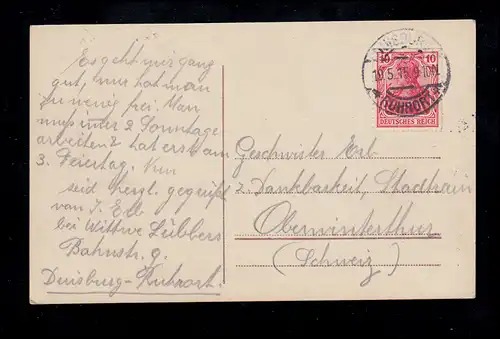 Es geht mir ganz
gut, nur hat man
zu wenig frei. Man
muss unter 2 Sonntage
arbeiten 2 hat erst am
3. Feiertag. Nun
seid herzl. gegrüßt
von J. Erb
bei Wittwe Lübbers
Bahnstr. 9.
Duisburg-Ruhrort.
10 10
DEUTSCHES REICH
DUISBURG
10.5.15. 9-10N.
RUHRORT
Geschwister Erb
z. Dankbarkeit, Stadtrain
Oberwinterthur
(Schweiz)